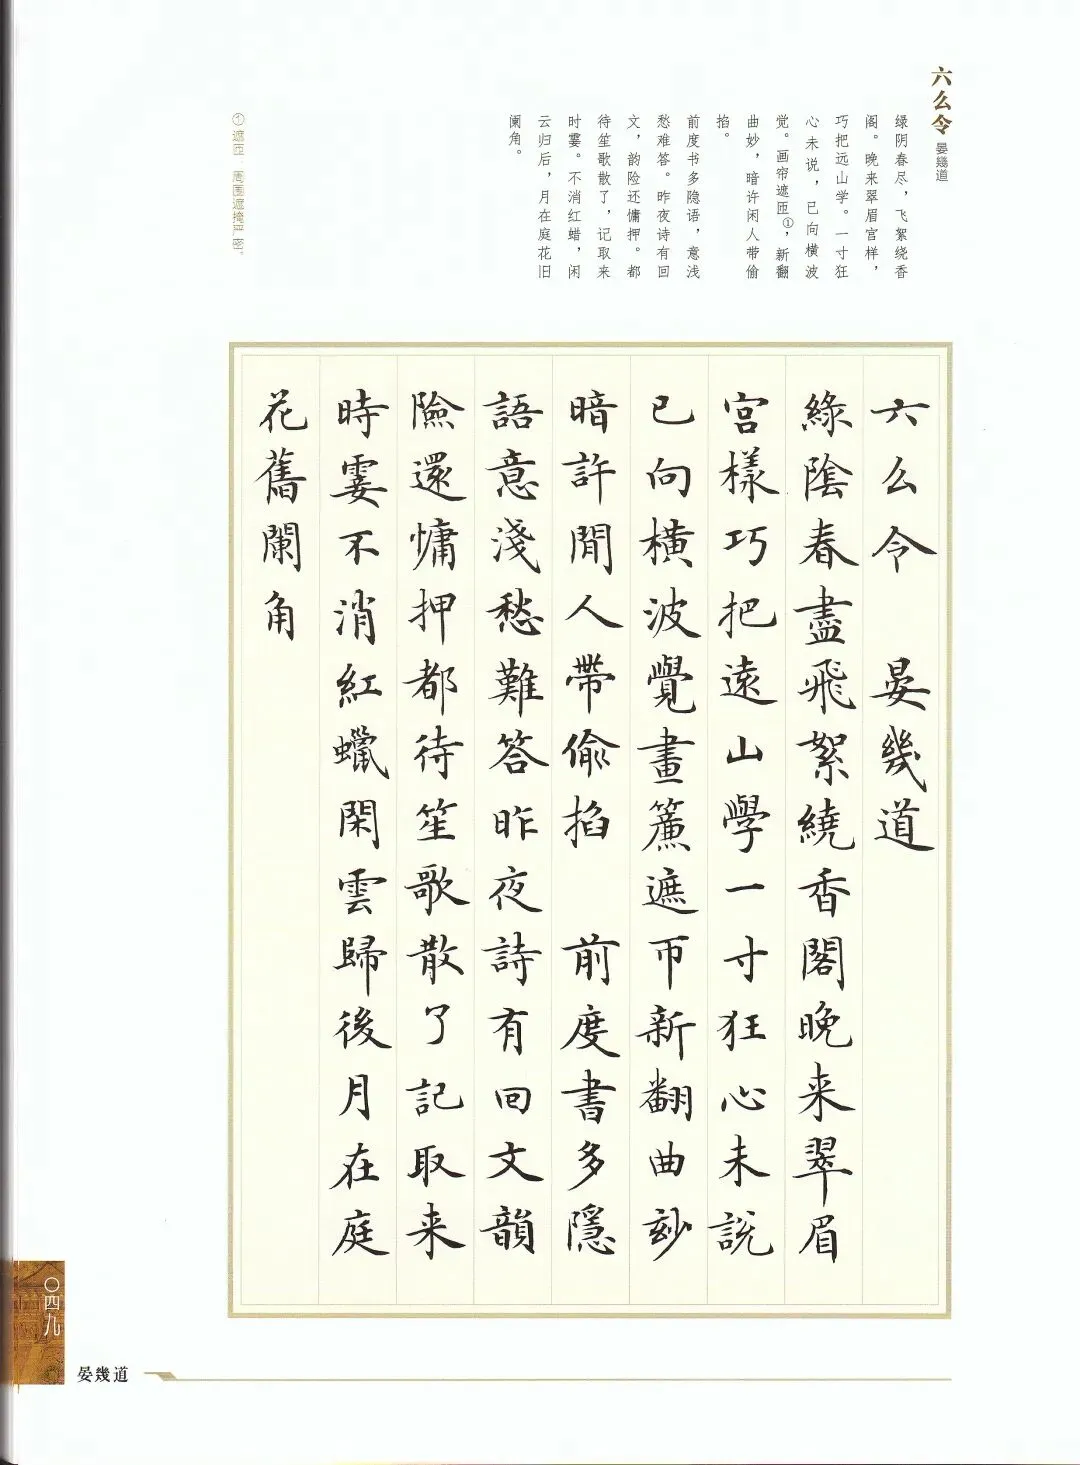 六么令 晏幾道
绿阴春尽，飞絮绕香
阁。晚来翠眉宫样，
巧把远山学。一寸狂
心未说，已向横波
觉。画帘遮匝①，新翻
曲妙，暗许闲人带偷
掐。
前度书多隐语，意浅
愁难答。昨夜诗有回
文，韵险还慵押。都
待笙歌散了，记取来
时霎。不消红蜡，闲
云归后，月在庭花旧
阑角。
① 遮匝：周围遮掩严密。
六么令 晏幾道
綠陰春盡飛絮繞香閣晚来翠眉
宫樣巧把遠山學一寸狂心未説
已向橫波覺畫簾遮帀新翻曲妙
暗許閒人帶偷掐 前度書多隱
語意淺愁難答昨夜詩有回文韻
險還慵押都待笙歌散了記取来
時霎不消紅蠟閑雲歸後月在庭
花舊闌角
〇四九
晏幾道